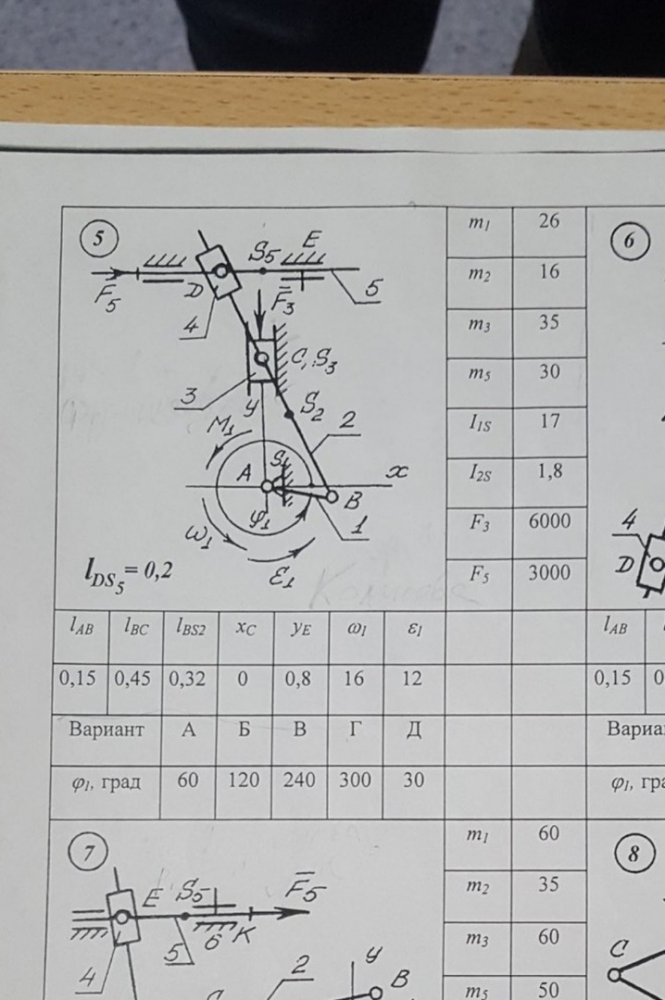 5
S₅ E
F̄₅ D F̄₃ 5
4
C, S₃
3 y S₂ 2
M₁
A S₁ x
φ₁ B
ω₁ 1
ε₁
l_DS₅ = 0,2
m₁ 26
m₂ 16
m₃ 35
m₅ 30
I₁S 17
I₂S 1,8
F₃ 6000
F₅ 3000
l_AB l_BC l_BS2 x_C y_E ω₁ ε₁
0,15 0,45 0,32 0 0,8 16 12
Вариант А Б В Г Д
φ₁, град 60 120 240 300 30
6
4
D
l_AB
0,15
Вариа
φ₁, гра
7
E S₅ F̄₅
5 6 K
4 2 y B
m₁ 60
m₂ 35
m₃ 60
m₅ 50
8
C